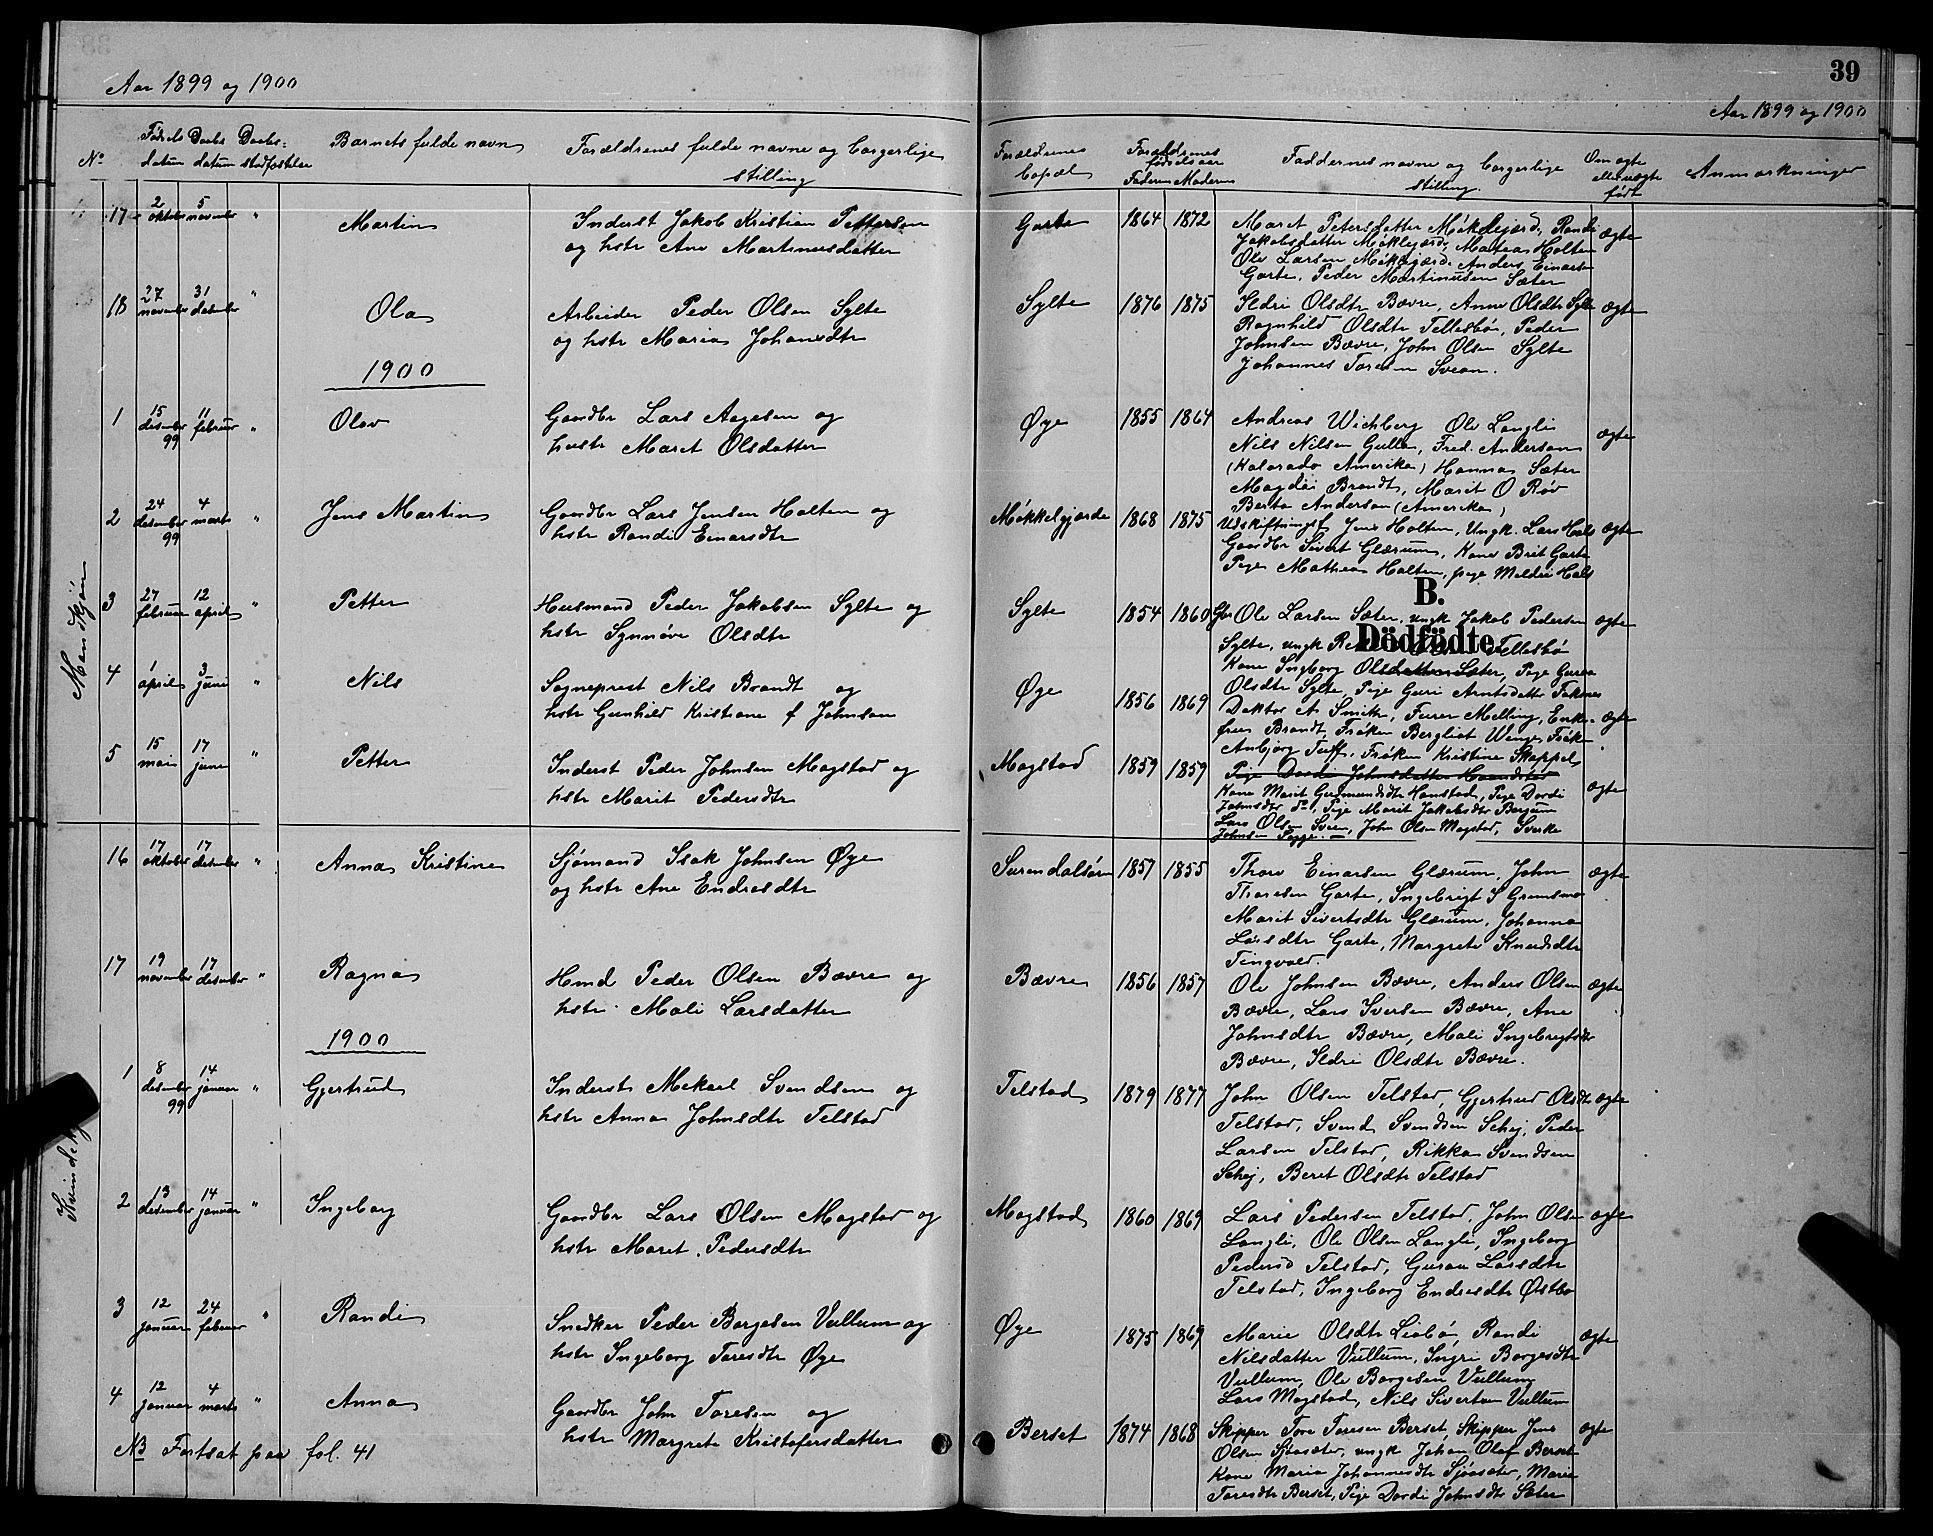 Aar 1899 og 1900
39
Aar 1899 og 1900
No
Fødsels datum
Daabs datum
Daabs- stadfæstelse
Barnets fulde navn
Forældrenes fulde navne og borgerlige stilling
Forældrenes bopæl
Forældrenes fødselsaar
Faderens Moderens
Faddernes navne og borgerlige stilling
Om ægte eller uægte født
Anmærkninger
Mandkjøn
17 2 oktober 5 november " Martin
Inderst Jakob Kristian Pettersen
og hstr Ane Martinusdatter
Garte 1864 1872
Maret Petersdatter Møkelgjærd, Randi
Jakobsdatter Møklegjærd, Matea Holten
Ole Larsen Møklegjærd, Anders Einarsen
Garte, Peder Martinusen Sæter
ægte
18 27 november 31 desember " Ola
Arbeider Peder Olsen Sylte
og hstr Maria Johansdtr
Sylte 1876 1875
Ildri Olsdtr Bævre, Anne Olsdtr Sylte
Ragnhild Olsdtr Tellesbø, Peder
Johnsen Bævre, John Olsen Sylte
Johannes Toresen Svean.
ægte
1900
1 15 desember 99 11 februar " Olav
Gaardbr Lars Aagesen og
hustr Maret Olsdatter
Øye 1855 1864
Andreas Wichberg Ole Langli
Nils Nilsen Gulla, Fred. Anderson
(Kolorado Amerika) Hanna Sæter
Magdli Brandt, Marit O Røv
Berta Anderson (Amerika)
ægte
2 24 desember 99 4 marts " Jens Martin
Gaardbr Lars Jensen Holten og
hstr Randi Einarsdtr
Møkkelgjærde 1868 1875
Udskiftningsf Jens Holten, Ungk. Lars Hals
Gaardbr Sivert Glærum, Kone Brit Garte
Pige Mathea Holten, pige Meldri Hals
ægte
B.
Dödfödte
3 27 februar 12 april " Petter
Husmand Peder Jakobsen Sylte og
hstr Synnøve Olsdtr
Sylte 1854 1860
Gbr. Ole Larsen Sæter, ungk Jakob Pedersen
Sylte, ungk Tellesbø
Kone Ingeborg Olsdatter Sæter, Pige Guraa
Olsdtr Sylte, Pige Guri Arntsdatter
ægte
4 april 3 juni " Nils
Sogneprest Nils Brandt og
hstr Gunhild Kristiane f Johnson
Øye 1856 1869
Doktor A Smith, Furer Melling, Enke-
frue Brandt, Frøken Bergliot Wenge, Frøken
Anbjørg Tuff, Frøken Kristine Skappel
ægte
5 15 mai 17 juni " Petter
Inderst Peder Johnsen Mogstad og
hstr Marit Pedersdtr
Mogstad 1859 1859
Pige Dordi Johnsdatter Haandstad
Kone Marit Gudmundsdtr Hanstad, Pige Dordi
Johnsdtr do, Pige Marit Jakobsdtr Bergum
Lars Olsen Sveen, John Olsen Mogstad, Sverke
Johnsen
ægte
16 17 oktober 17 desember " Anna Kristine
Sjømand Isak Johnsen Øye
og hstr Ane Endresdtr
Surendalsøren 1857 1855
Thore Einarsen Glærum, John
Thoresen Garte, Ingebrigt S Grimsmo
Marit Sivertsdtr Glærum, Johanna
Larsdtr Garte, Margrete Knudsdtr
Tingvold.
ægte
17 19 november 17 desember " Ragna
Hmd Peder Olsen Bævre og
hstr Mali Larsdatter
Bævre 1856 1857
Ole Johnsen Bævre, Anders Olsen
Bævre, Lars Iversen Bævre, Ane
Johnsdtr Bævre, Mali Ingebrigtsdtr
Bævre, Ildri Olsdtr Bævre.
ægte
1900
Kvindekj
1 8 desember 99 14 januar " Gjertrud
Inderst Mekael Svendsen og
hstr Anna Johnsdtr Telstad
Telstad 1879 1877
John Olsen Telstad, Gjertrud Olsdtr
Telstad, Svend Svendsen Schej, Peder
Larsen Telstad, Rikka Svendsen
Schej, Beret Olsdtr Telstad
ægte
2 13 desember 14 januar " Ingeborg
Gaardbr Lars Olsen Mogstad og
hstr Maret Pedersdtr
Mogstad 1860 1869
Lars Pedersen Telstad, John Olsen
Langli, Ole Olsen Langli, Ingeborg
Pedersd Telstad, Guraa Larsdtr
Telstad, Ingeborg Endresdtr Østbø
ægte
3 12 januar 24 februar " Randi
Snedker Peder Borgesen Vullum og
hstr Ingeborg Toresdtr Øye
Øye 1875 1869
Marie Olsdtr Liabø, Randi
Nilsdatter Vullum, Ingri Borgesdtr
Vullum, Ole Borgesen Vullum
Lars Mogstad, Nils Sivertsen Vullum
ægte
4 12 januar 4 marts " Anna
Gaardbr John Toresen og
hstr Margrete Kristofersdatter
Berset 1874 1868
Skipper Tore Toresen Berset, Skipper Jens
Olsen Sjøsæter, ungk Johan Olaf Berset
Kone Maria Johannesdtr Sjøsæter, Marie
Toresdtr Berset, Pige Dordi Johnsdtr Sæter
ægte
NB Fortsat paa fol. 41